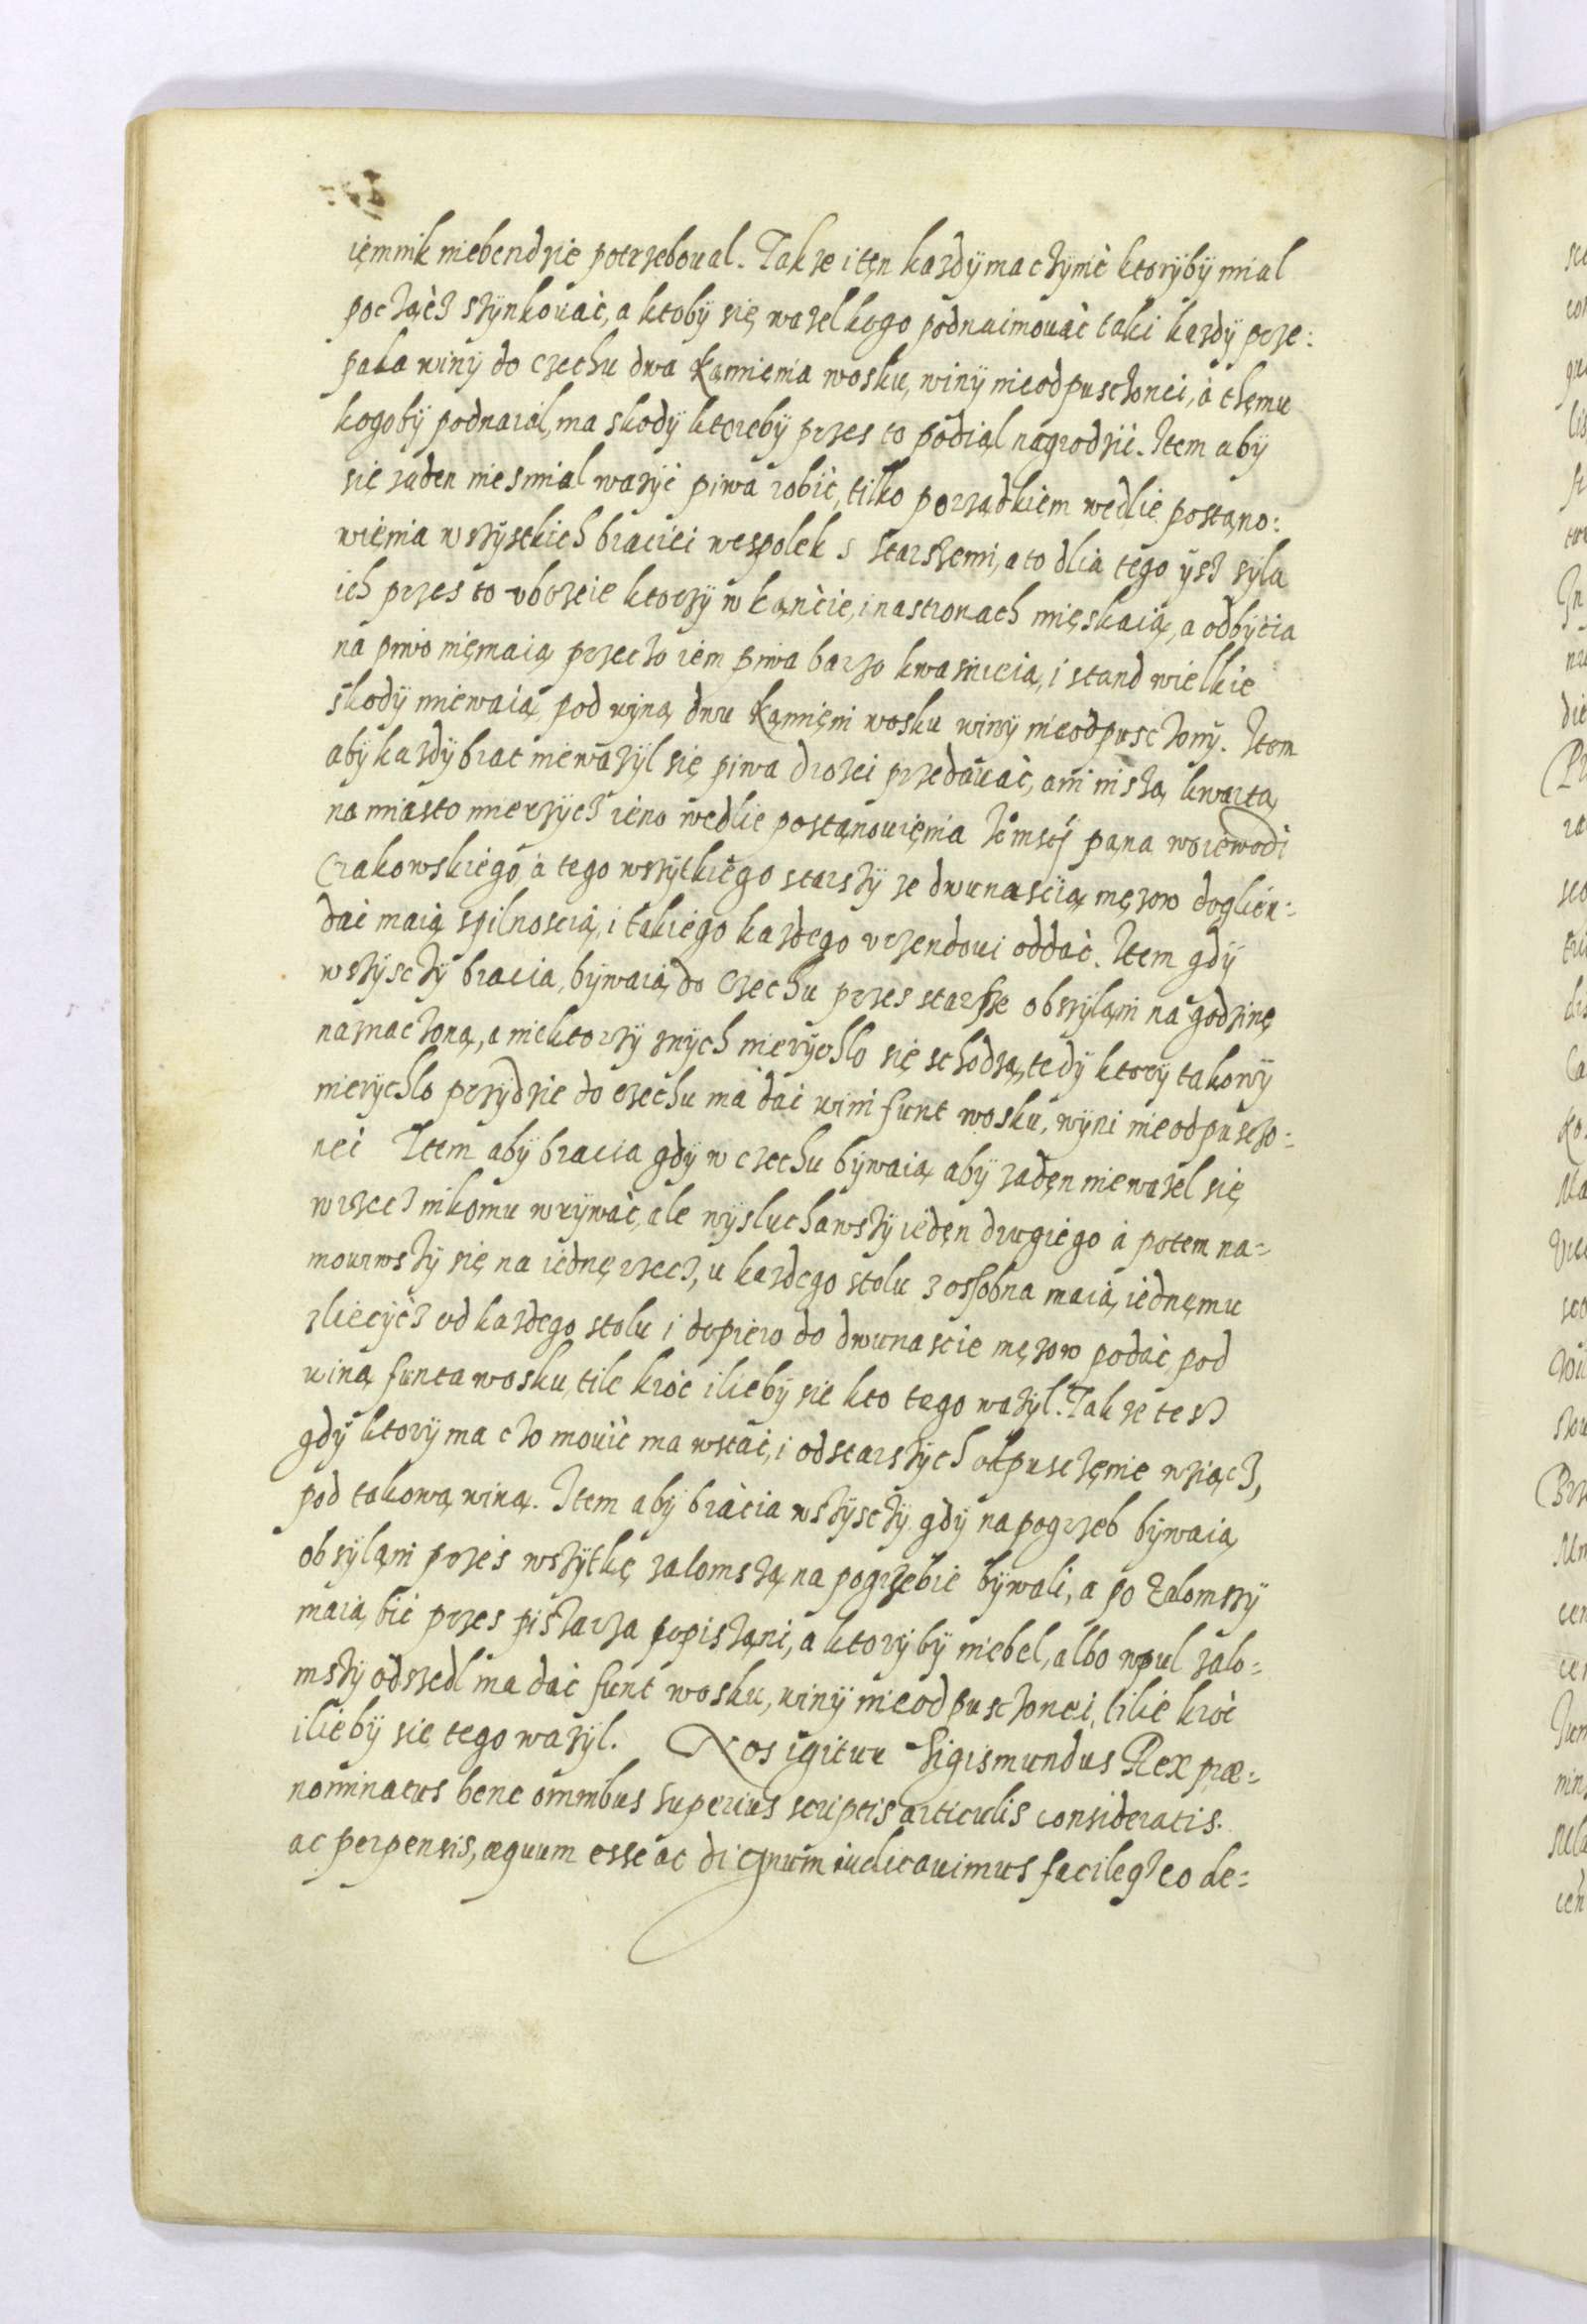 ięmnik niebendzie potrzebował. Takze i tęn kazdÿ ma cżÿnić ktorÿbÿ miał
poczacz sżÿnkować, a ktobÿ się wazel kogo podnaimować taki kazdÿ prze:
pała winÿ do czechu dwa Kąmięnia wosku, winÿ nieodpuscżonei, à tęmu
kogobÿ podnaiąl, ma skodÿ ktorebÿ przes to podiąl nagrodzić. Item abÿ
sie zaden niesmial wazÿć piwa robić, tilko porządkięm wedlie postąno:
więnia wszÿstkich braciei wespolek s starszemi, a to dlia tego ÿsz syla
ich przes to vbozeie ktorzÿ w kąncie, i na stronach mięskaią, a odbÿcia
na piwo nięmaią przeczo iem piwa barzo kwasnieią, i stand wielkie
skodÿ miewaią, pod winą dwu Kąmięni wosku winÿ nieodpuscżonÿ. Item
abÿ kazdÿ brat niewazÿl się piwa drozei przedawać, ani inszą kwartą
na miasto mierzÿcz ieno wedlie postąnowięnia Iemscÿ pąna woiewodi
Crakowskiego, à tego wszÿtkiego starszÿ ze dwunascią męzow doglien:
dać maią spilnoscią, i takiego kazdego vrzendowi oddać. Item gdÿ
wszÿscżÿ bracia, bÿwaią do Czechu przes starsze obszÿląni na godzinę
naznaczoną, a niektorzÿ znÿch nierÿchlo się schodzą, tedÿ ktorÿ takowÿ
nierÿchlo przÿdzie do czechu ma dać wini funt wosku, wÿni nieodpusczo:
nei Item abÿ bracia gdÿ w czechu bÿwaią abÿ zadęn niewazel się
w rzecz nikomu wrÿwać, ale wÿsluchawszÿ iedęn drugiego à potem na:
mowiwszÿ się na iednę rzecz, u kazdego stolu z ossobna maią iednęmu
zliecÿcz od kazdego stolu i dopiero do dwunascie męzow podać pod
winą funta wosku, tile kroć iliebÿ sie kto tego wazÿl. Takze tesz
gdÿ ktorÿ ma czo mowić ma wstać, i od starszÿch otpuscżęnie wziącz,
pod takową winą. Item abÿ bracia wszÿscżÿ gdÿ na pogrzeb bÿwaią
obsÿląni przes wszÿtkę zalomszą na pogrzebie bÿwali, a po zalomszÿ
maią bić przes piszarza popisząni, a ktorÿbÿ niebel, albo wpul zalo:
mszÿ odszedl ma dać funt wosku, winÿ nieodpusczonei, tilie kroć
iliebÿ sie tego wazÿl. Nos igitur Sigismundus Rex præ:
nominatus bene omnibus superius scriptis articulis consideratis.
ac perpensis, æquum esse ac dignum iudicauimus facileqȝ eo de: